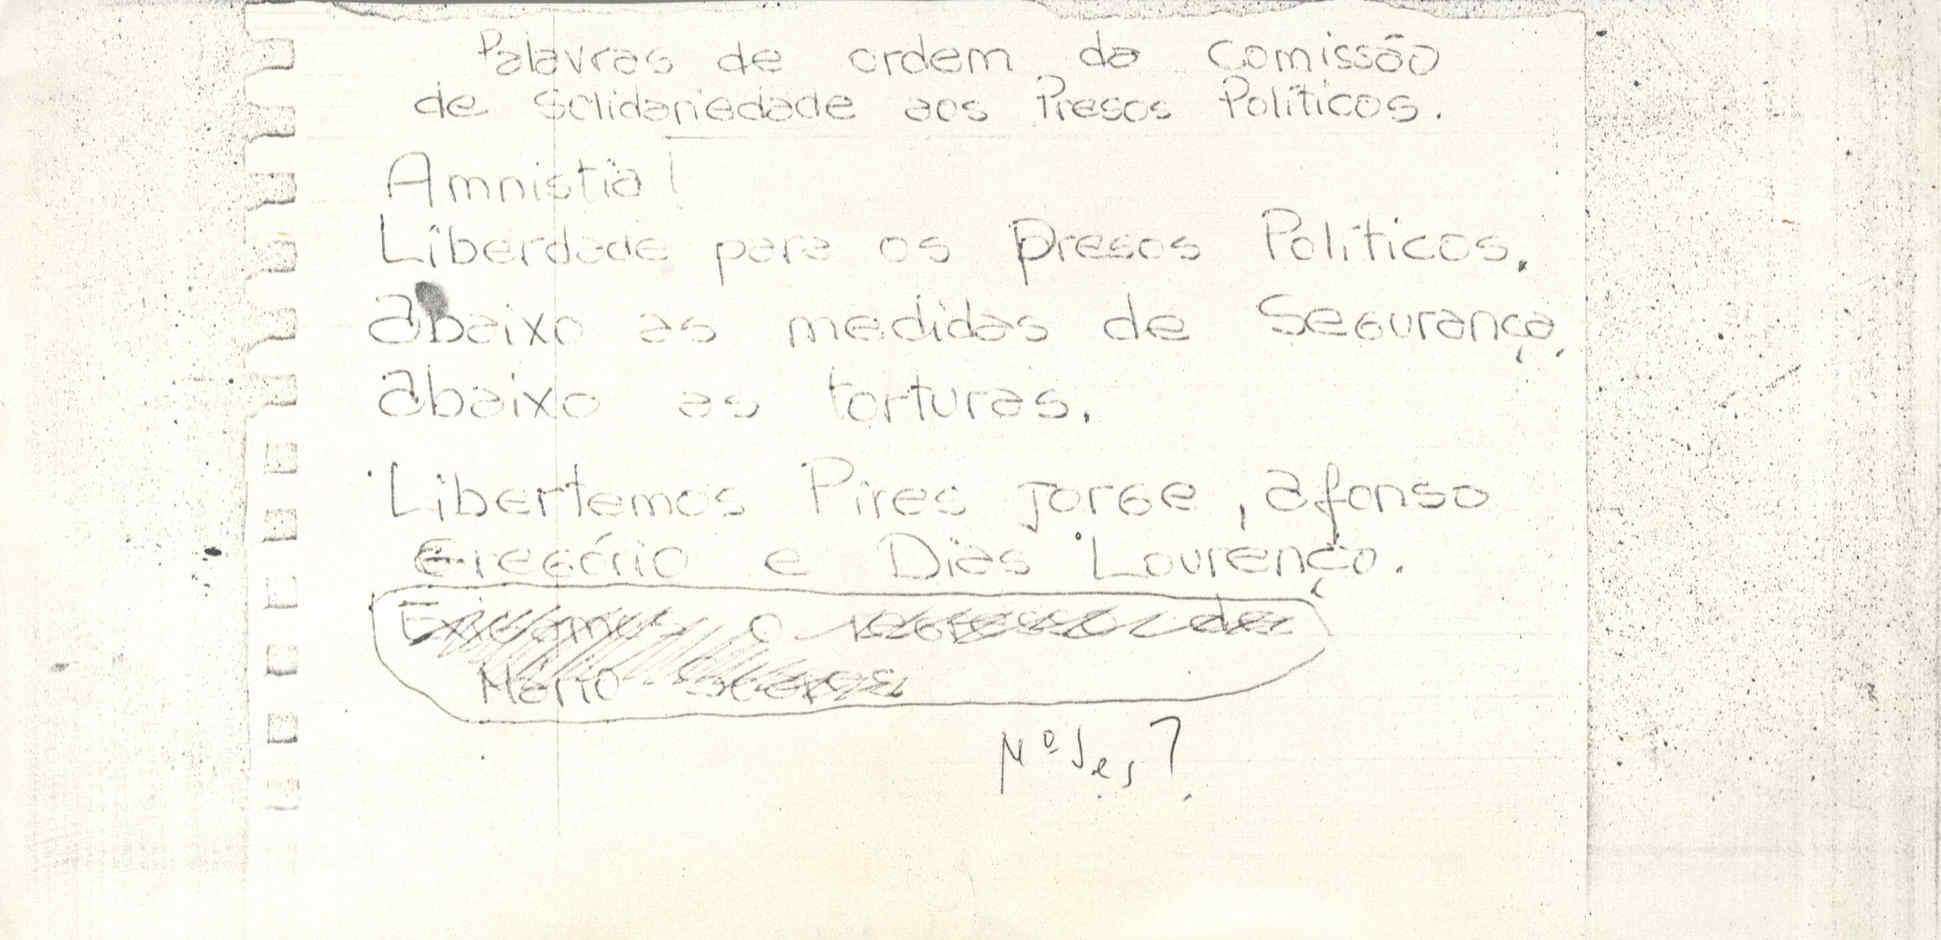 Palavras de ordem da Comissão
de Solidariedade aos Presos Políticos.
Amnistia!
Liberdade para os Presos Políticos.
Abaixo as medidas de Segurança.
Abaixo as torturas.
Libertemos Pires Jorge, Afonso
Gregório e Dias Lourenço.
Exigimos o regresso de
Mário Soares